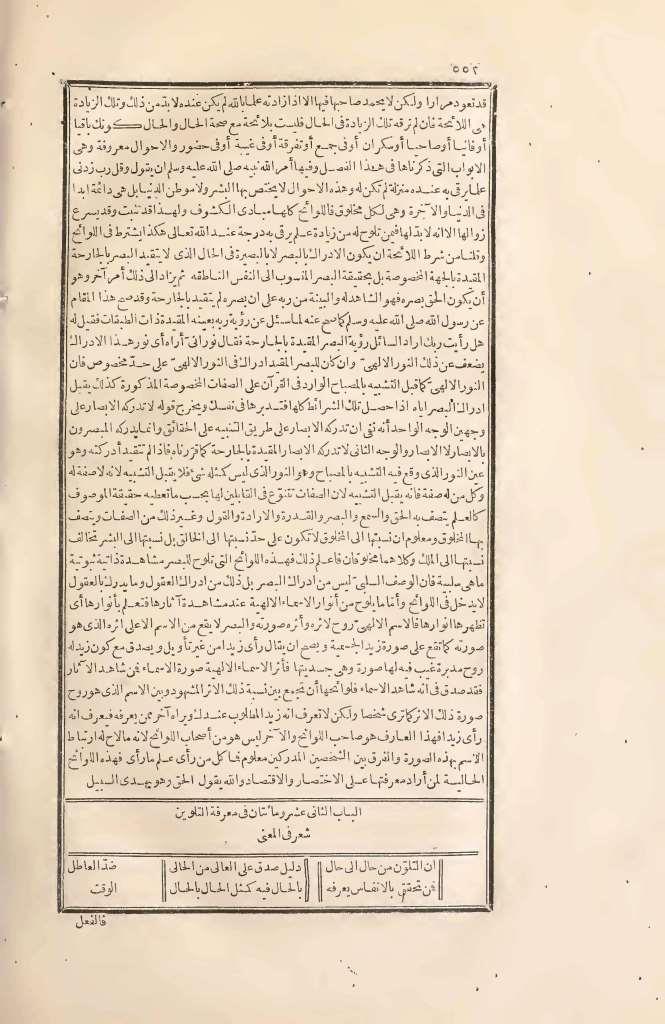 ٥٥٢
قد تعود مرارا ولكن لا يحمد صاحبها فيها الا اذا زادته علما بالله لم يكن عنده لا بد من ذلك وتلك الزيادة
هى اللائحة فان لم ترقه تلك الزيادة فى الحال فليست بلائحة مع صحة الحال والحال كونك باقيا
أو فانيا أو صاحيا أو سكران أو فى جمع أو تفرقة أو فى غيبة أو فى حضور والاحوال معروفة وهى
الابواب التى ذكرناها فى هذا الفصل وفيها أمر الله نبيه صلى الله عليه وسلم ان يقول وقل رب زدنى
علما يرقى به عنده منزلة لم تكن له وهذه الاحوال لا يختص بها البشر ولا موطن الدنيا بل هى دائمة ابدا
فى الدنيا والآخرة وهى لكل مخلوق فاللوائح كانها مبادى الكشوف ولهذا قد تثبت وقد يسرع
زوالها الا انه لا بد لها فيمن تلوح له من زيادة علم يرقى به درجة عند الله تعالى هكذا يشترط فى اللوائح
وقلنا من شرط اللائحة ان يكون الادراك بالبصر لا بالبصيرة فى الحال الذى لا يتقيد البصر بالجارحة
المقيدة بالجهة المخصوصة بل بحقيقة البصر المنسوب الى النفس الناطقة ثم يزاد الى ذلك أمر آخر وهو
أن يكون الحق بصره فهو الشاهد له والبينة من ربه على ان بصره لم يتقيد بالجارحة وقد صح هذا المقام
عن رسول الله صلى الله عليه وسلم كما صح عنه لما سئل عن رؤية ربه بعينه المقيدة ذات الطبقات فقيل له
هل رأيت ربك اراد السائل رؤية البصر المقيدة بالجارحة فقال نورانى أراه أى نور هذا الادراك
يضعف عن ذلك النور الالهى وان كان للبصر المقيد ادراك فى النور الالهى على حد مخصوص فان
النور الالهى كما قبل التشبيه بالمصباح الوارد فى القرآن على الصفات المخصوصة المذكورة كذلك يقبل
ادراك البصر اياه اذا حصل تلك الشرائط كلها فتدبرها فى نفسك ويخرج قوله لا تدركه الابصار على
وجهين الوجه الواحد أنه نفى ان تدركه الابصار على طريق التنبيه على الحقائق وانما يدركه المبصرون
بالابصار لا الابصار والوجه الثانى لا تدركه الابصار المقيدة بالجارحة كما قررناه فاذا لم تتقيد أدركته وهو
عين النور الذى وقع فيه التشبيه بالمصباح وهو النور الذى ليس كمثله شئ فلا يقبل التشبيه لانه لا صفة له
وكل من له صفة فانه يقبل التشبيه لان الصفات تتنوع فى القابلين لها بحسب ما تعطيه حقيقة الموصوف
كالعلم يتصف به الحق والسمع والبصر والقدرة والارادة والقول وغير ذلك من الصفات ويتصف
بها المخلوق ومعلوم ان نسبتها الى المخلوق لا تكون على حد نسبتها الى الخالق بل نسبتها الى البشر تخالف
نسبتها الى الملك وكلاهما مخلوقان فاعلم ذلك فهذه اللوائح التى تلوح للبصر مشاهدة ذاتية ثبوتية
ما هى سلبية فان الوصف السلبى ليس من ادراك البصر بل ذلك من ادراك العقول وما يدرك بالعقول
لا يدخل فى اللوائح وأما ما يلوح من أنوار الاسماء الالهية عند مشاهدة آثارها فتعلم بأنوارها أى
تظهرها انوارها فالاسم الالهى روح لاثره وأثره صورته والبصر لا يقع من الاسم الا على اثره الذى هو
صورته كما تقع على صورة زيد الجسمية ويصح ان يقال رأى زيدا من غير تأويل ويصدق مع كون زيد له
روح مدبرة غيب فيه لها صورة وهى جسديتها فأثر الاسماء الالهية صورة الاسماء فمن شاهد الآثار
فقد صدق فى انه شاهد الاسماء فلوائحها أن تجمع بين نسبة ذلك الاثر المشهود وبين الاسم الذى هو روح
صورة ذلك الاثر كما ترى شخصا ولكن لا تعرف انه زيد المطلوب عندك ويراه آخر ممن يعرفه فيعرف انه
رأى زيدا فهذا العارف هو صاحب اللوائح والآخر ليس هو من أصحاب اللوائح لانه ما لاح له ارتباط
الاسم بهذه الصورة والفرق بين الشخصين المدركين معلوم فما كل من رأى علم ما رأى فهذه اللوائح
الحالية لمن أراد معرفتها على الاختصار والاقتصاد والله يقول الحق وهو يهدى السبيل
الباب الثانى عشر ومائتان فى معرفة التلوين
شعر فى المعنى
ان التلون من حال الى حال دليل صدق على العالى من الحالى ضد العاطل
فمن تحقق بالانفاس يعرفه بالحال فيه كمثل الحال بالحال الوقت
فالفعل